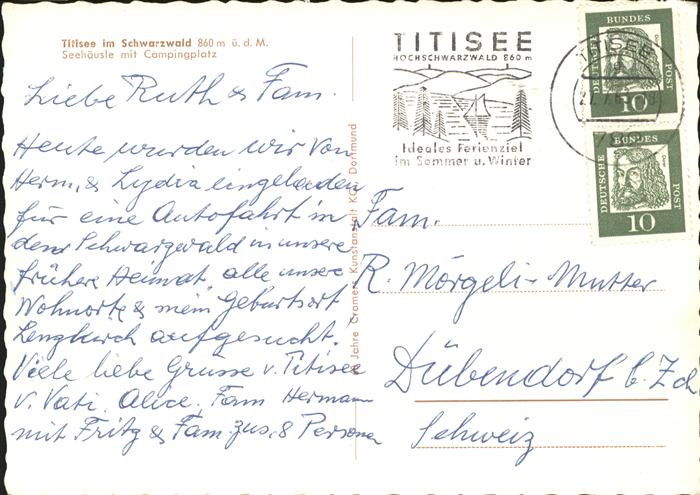 Titisee im Schwarzwald 860 m ü. d. M.
Seehäusle mit Campingplatz
Liebe Ruth & Fam.
Heute wurden wir von
Herm. & Lydia eingeladen
für eine Autofahrt in
den Schwarzwald in unsere
frühere Heimat, alle unsere
Wohnorte & mein Geburtsort
Lenzkirch aufgesucht.
Viele liebe Grüsse v. Titisee
v. Vati. Alice. Fam Hermann
mit Fritz & Fam. zus. 8 Personen
Jahre Cramers Kunstanstalt KG, Dortmund
TITISEE
HOCHSCHWARZWALD 860 m
Ideales Ferienziel
im Sommer u. Winter
TITISEE
DEUTSCHE BUNDES POST
10
DEUTSCHE BUNDES POST
10
Fam.
R. Mörgeli-Mutter
Dübendorf b. Zch
Schweiz